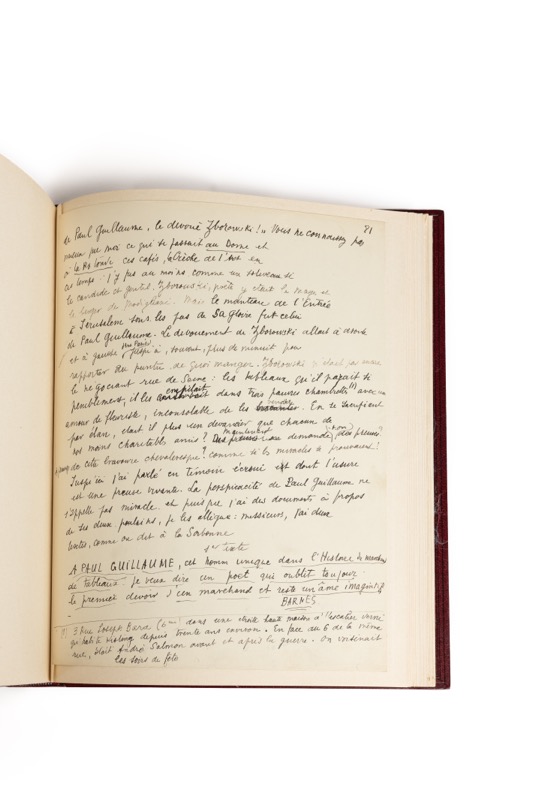 81
de Paul Guillaume, le dévoué Zborowski !.. Vous ne connaissez pas
mieux que moi ce qui se passait au Dome et
à la Rotonde ces cafés, la Crèche de l'art en
ces temps : j'y fus au moins comme un soliveau si
le candide et gentil Zborowski, poète y était le mage
le berger de Modigliani. Mais le manteau de l'Entrée
à Jerusalem sous les pas de Sa gloire fut celui
de Paul Guillaume. Le dévouement de Zborowski allait à droite
et à gauche jusqu'à, souvent, plus de minuit pour
rapporter au peintre de quoi manger. Zborowski
le négociant rue de Seine : les tableaux qu'il payait si
péniblement, il les empilait dans trois pauvres chambrettes (1) avec un
amour de fleuriste, inconsolable de les vendre. En se sacrifiant
par élan, était-il plus en devancier que chacun de
nos moins charitables amis ? maintenant on demande des preuves
de cette bravoure chevaleresque ? comme si les miracles se prouvaient !
Jusqu'ici j'ai parlé en témoin dont l'usure
est une preuve vivante. La perspicacité de Paul Guillaume ne
s'appelle pas miracle et puisque j'ai des documents à propos
de ses deux poulains, je les allègue : messieurs, j'ai deux
textes, comme on dit à la Sorbonne
1er texte
A PAUL GUILLAUME, cet homme unique dans l'Histoire des marchands
de tableaux. Je veux dire un poët qui oublit toujour
le premier devoir d'un marchand et reste un âme imaginatif
BARNES
(1) 3 Rue Joseph Bara (6me) dans une étroite haute maison à l'escalier
qu'habite Kisling depuis trente ans environ. En face au 6 de la même
rue, était André Salmon avant et après la guerre. On
les soirs de fête